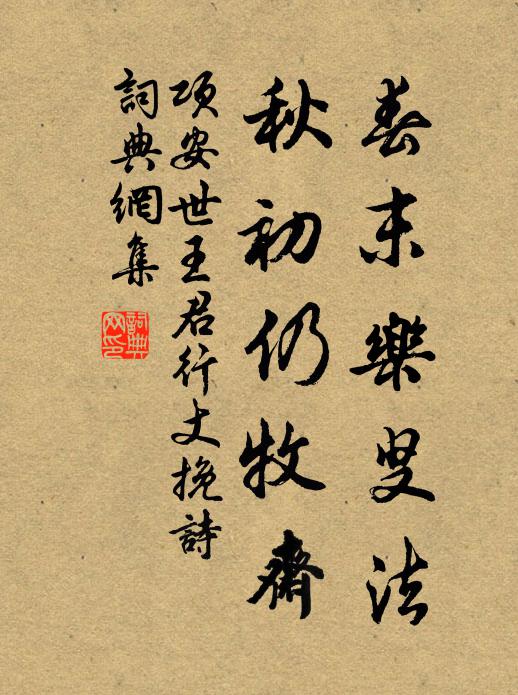 春末樂叟法
秋初仍牧齋
項安世王君行丈挽詩
詞典網集
詞典網印